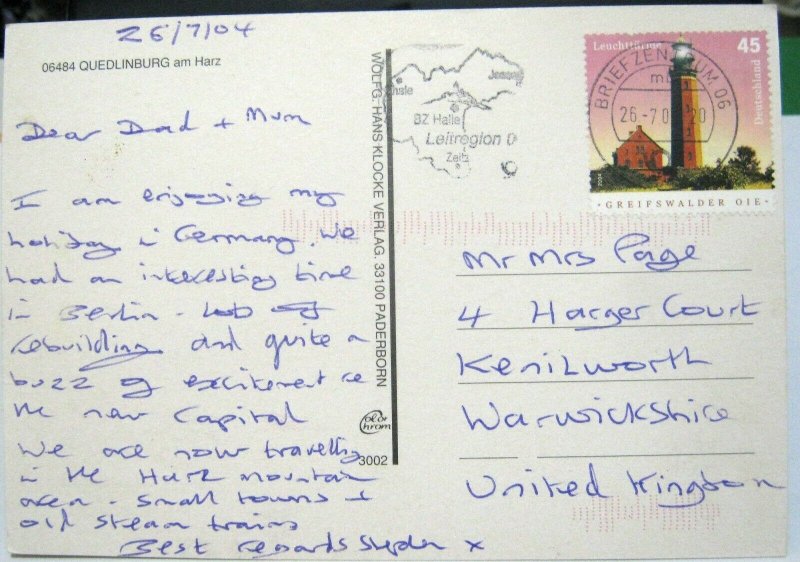 25/7/04
06484 QUEDLINBURG am Harz
Dear Dad + Mum
I am enjoying my
holiday in Germany. We
had an interesting time
in Berlin - lots of
rebuilding and quite a
buzz of excitement re
the new Capital
We are now travelling
in the Harz mountain
area - small towns &
old steam trains
Best regards Stephen x
WOLFG. HANS KLOCKE VERLAG. 33100 PADERBORN
Color
chrom
3002
BZ Halle
Leitregion D
Zeitz
Leuchttürme
45
Deutschland
GREIFSWALDER OIE
BRIEFZENTRUM 06
26.-7.0
20
Mr Mrs Page
4 Harger Court
Kenilworth
Warwickshire
United Kingdom